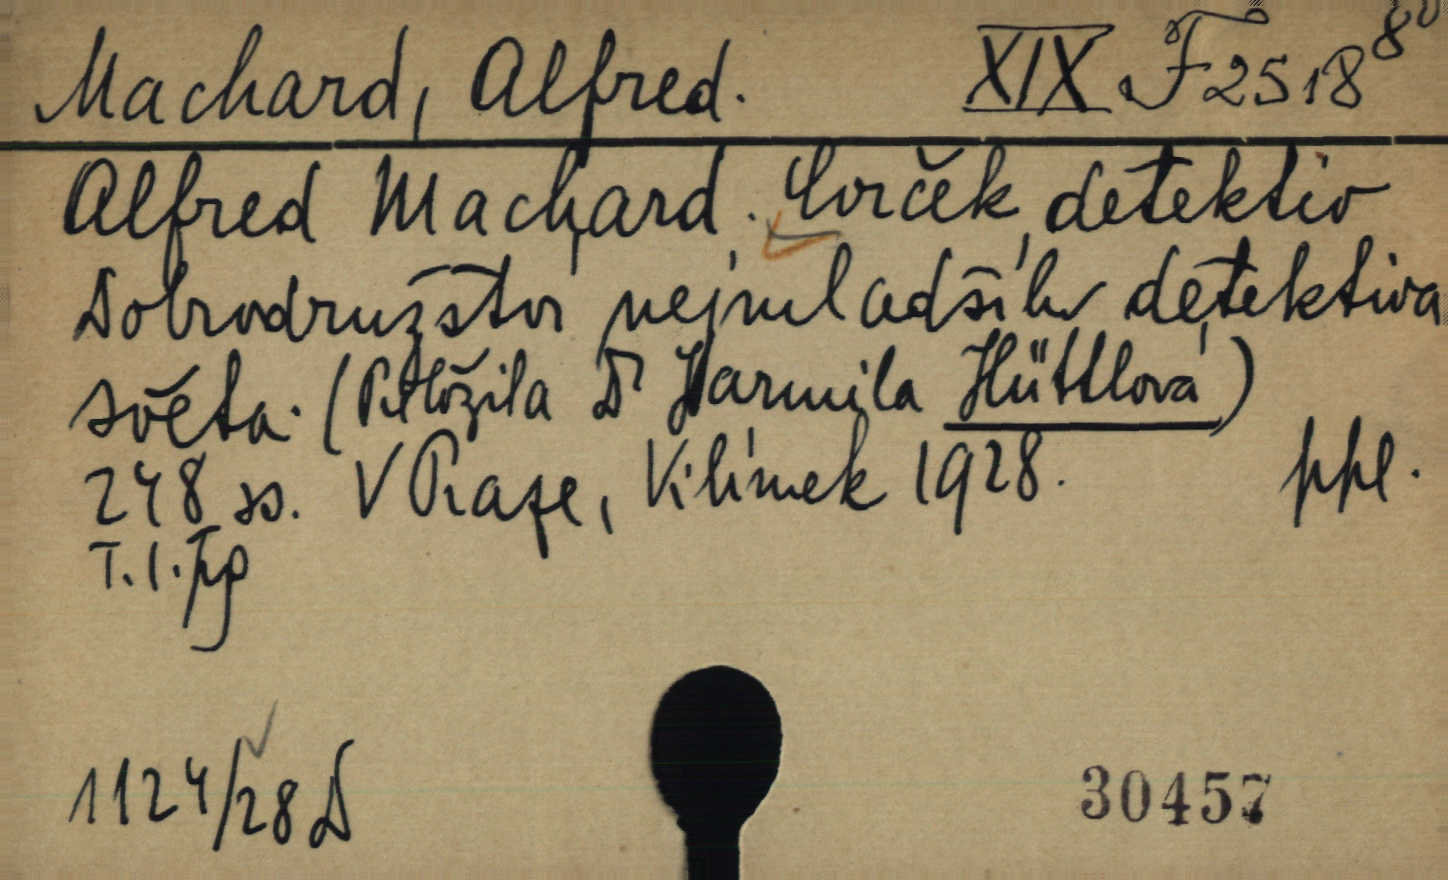 Machard, Alfred. XIX F 2518 8°
Alfred Machard. Cvrček detektiv
Dobrodružství nejmladšího detektiva
světa. (Přeložila Dr Jarmila Hüttlová)
248 ss. V Praze, Vilímek 1928. ppl.
T. I.
1124/28 D
30457